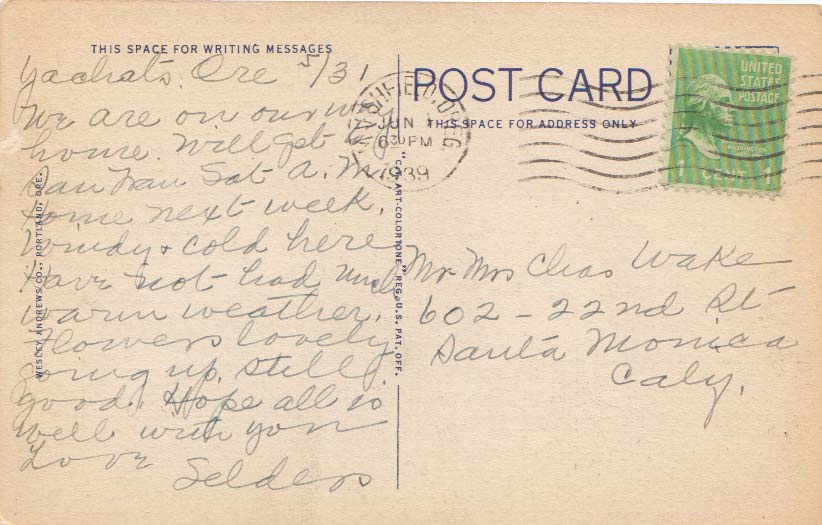 THIS SPACE FOR WRITING MESSAGES
Yachats, Ore 5/31
We are on our way
home. Will get to
San Fran Sat A.M.
Home next week.
Windy & cold here
Have not had much
warm weather.
Flowers lovely
going up, still
good. Hope all is
well with you
Love
Selders
WESLEY ANDREWS CO., PORTLAND, ORE.
"C.T. ART-COLORTONE" REG. U.S. PAT. OFF.
POST CARD
THIS SPACE FOR ADDRESS ONLY
MARSHFIELD, OREG.
JUN 1
6 30 PM
1939
UNITED
STATES
POSTAGE
WASHINGTON
1 CENT 1
Mr Mrs Chas Wake
602 - 22nd St
Santa Monica
Caly.